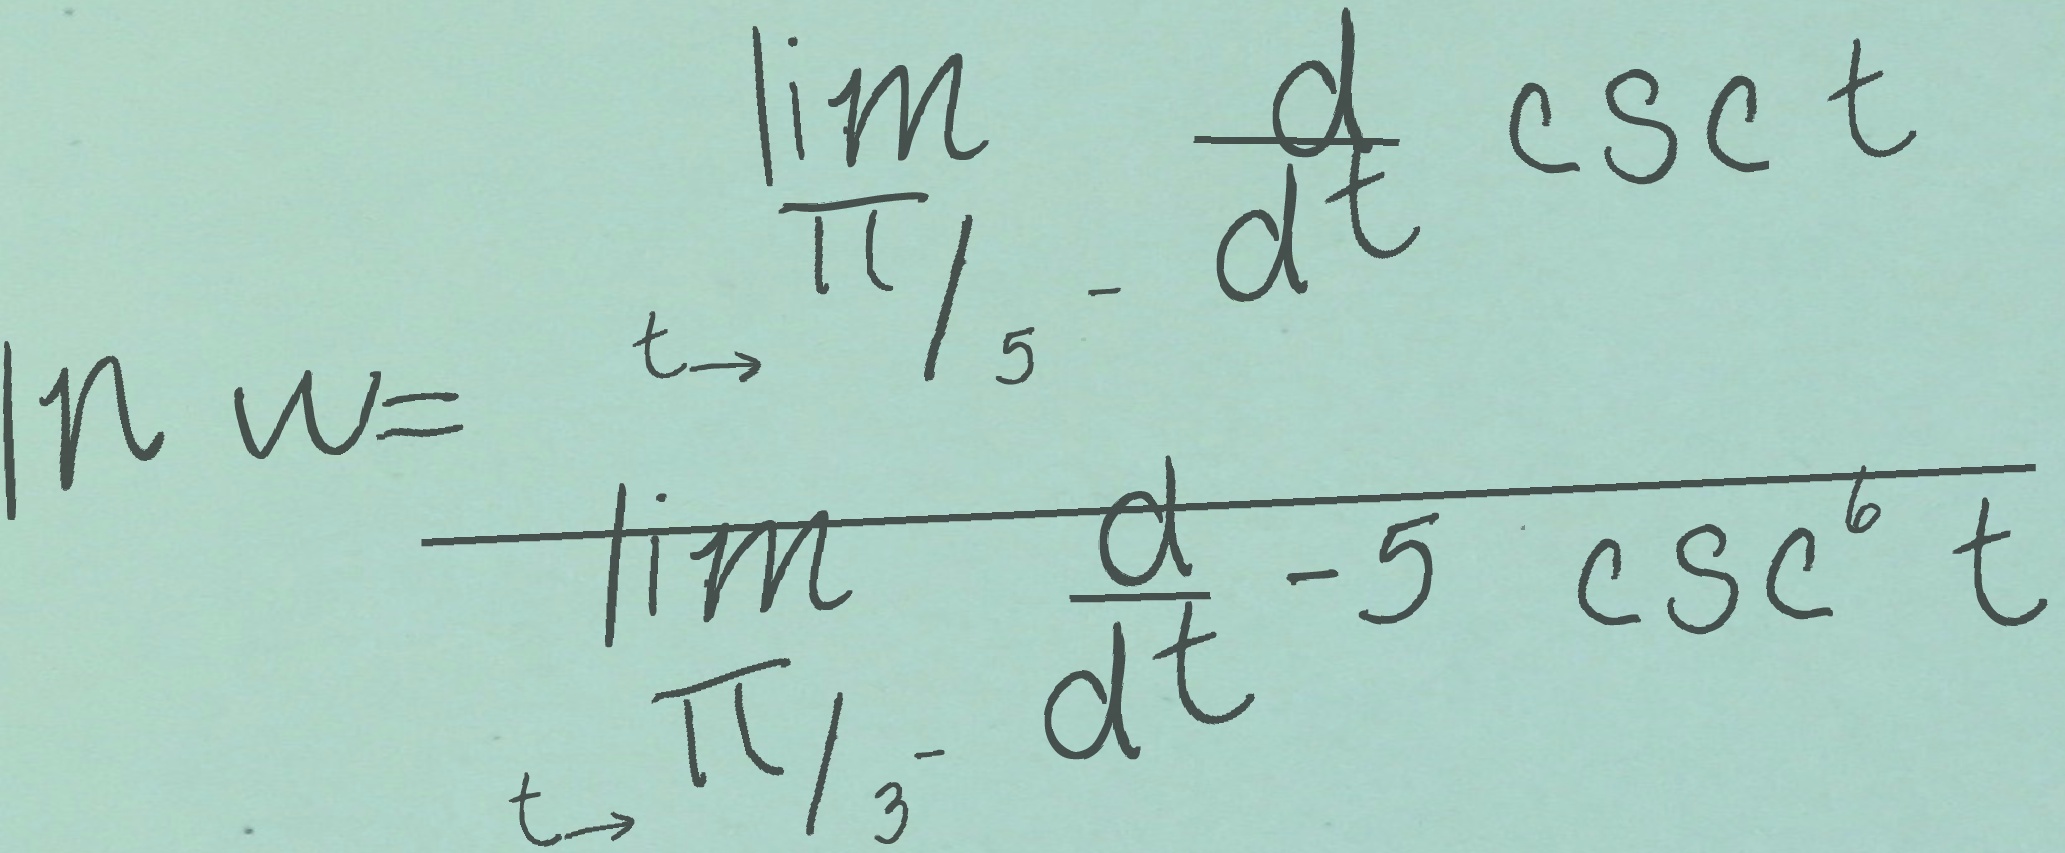 \ln w = \frac{\lim_{t \to \pi/5^-} \frac{d}{dt} \csc t}{\lim_{t \to \pi/3^-} \frac{d}{dt} -5 \csc^6 t}